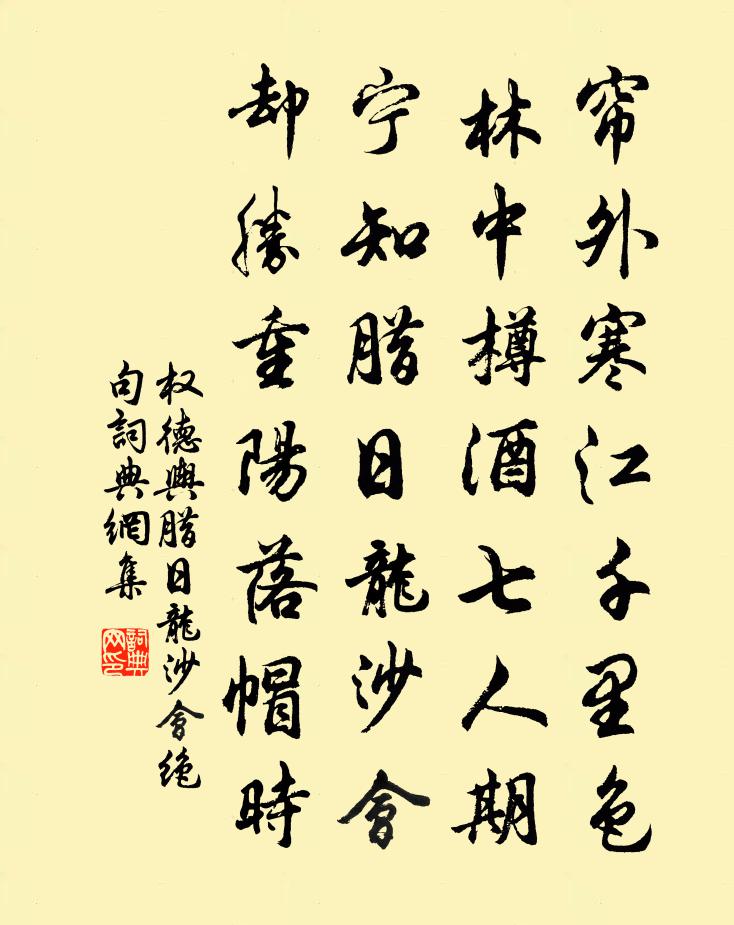 帘外寒江千里色
林中樽酒七人期
宁知腊日龍沙會
却勝重陽落帽時
权德輿腊日龍沙會绝
句詞典網集
詞典网印